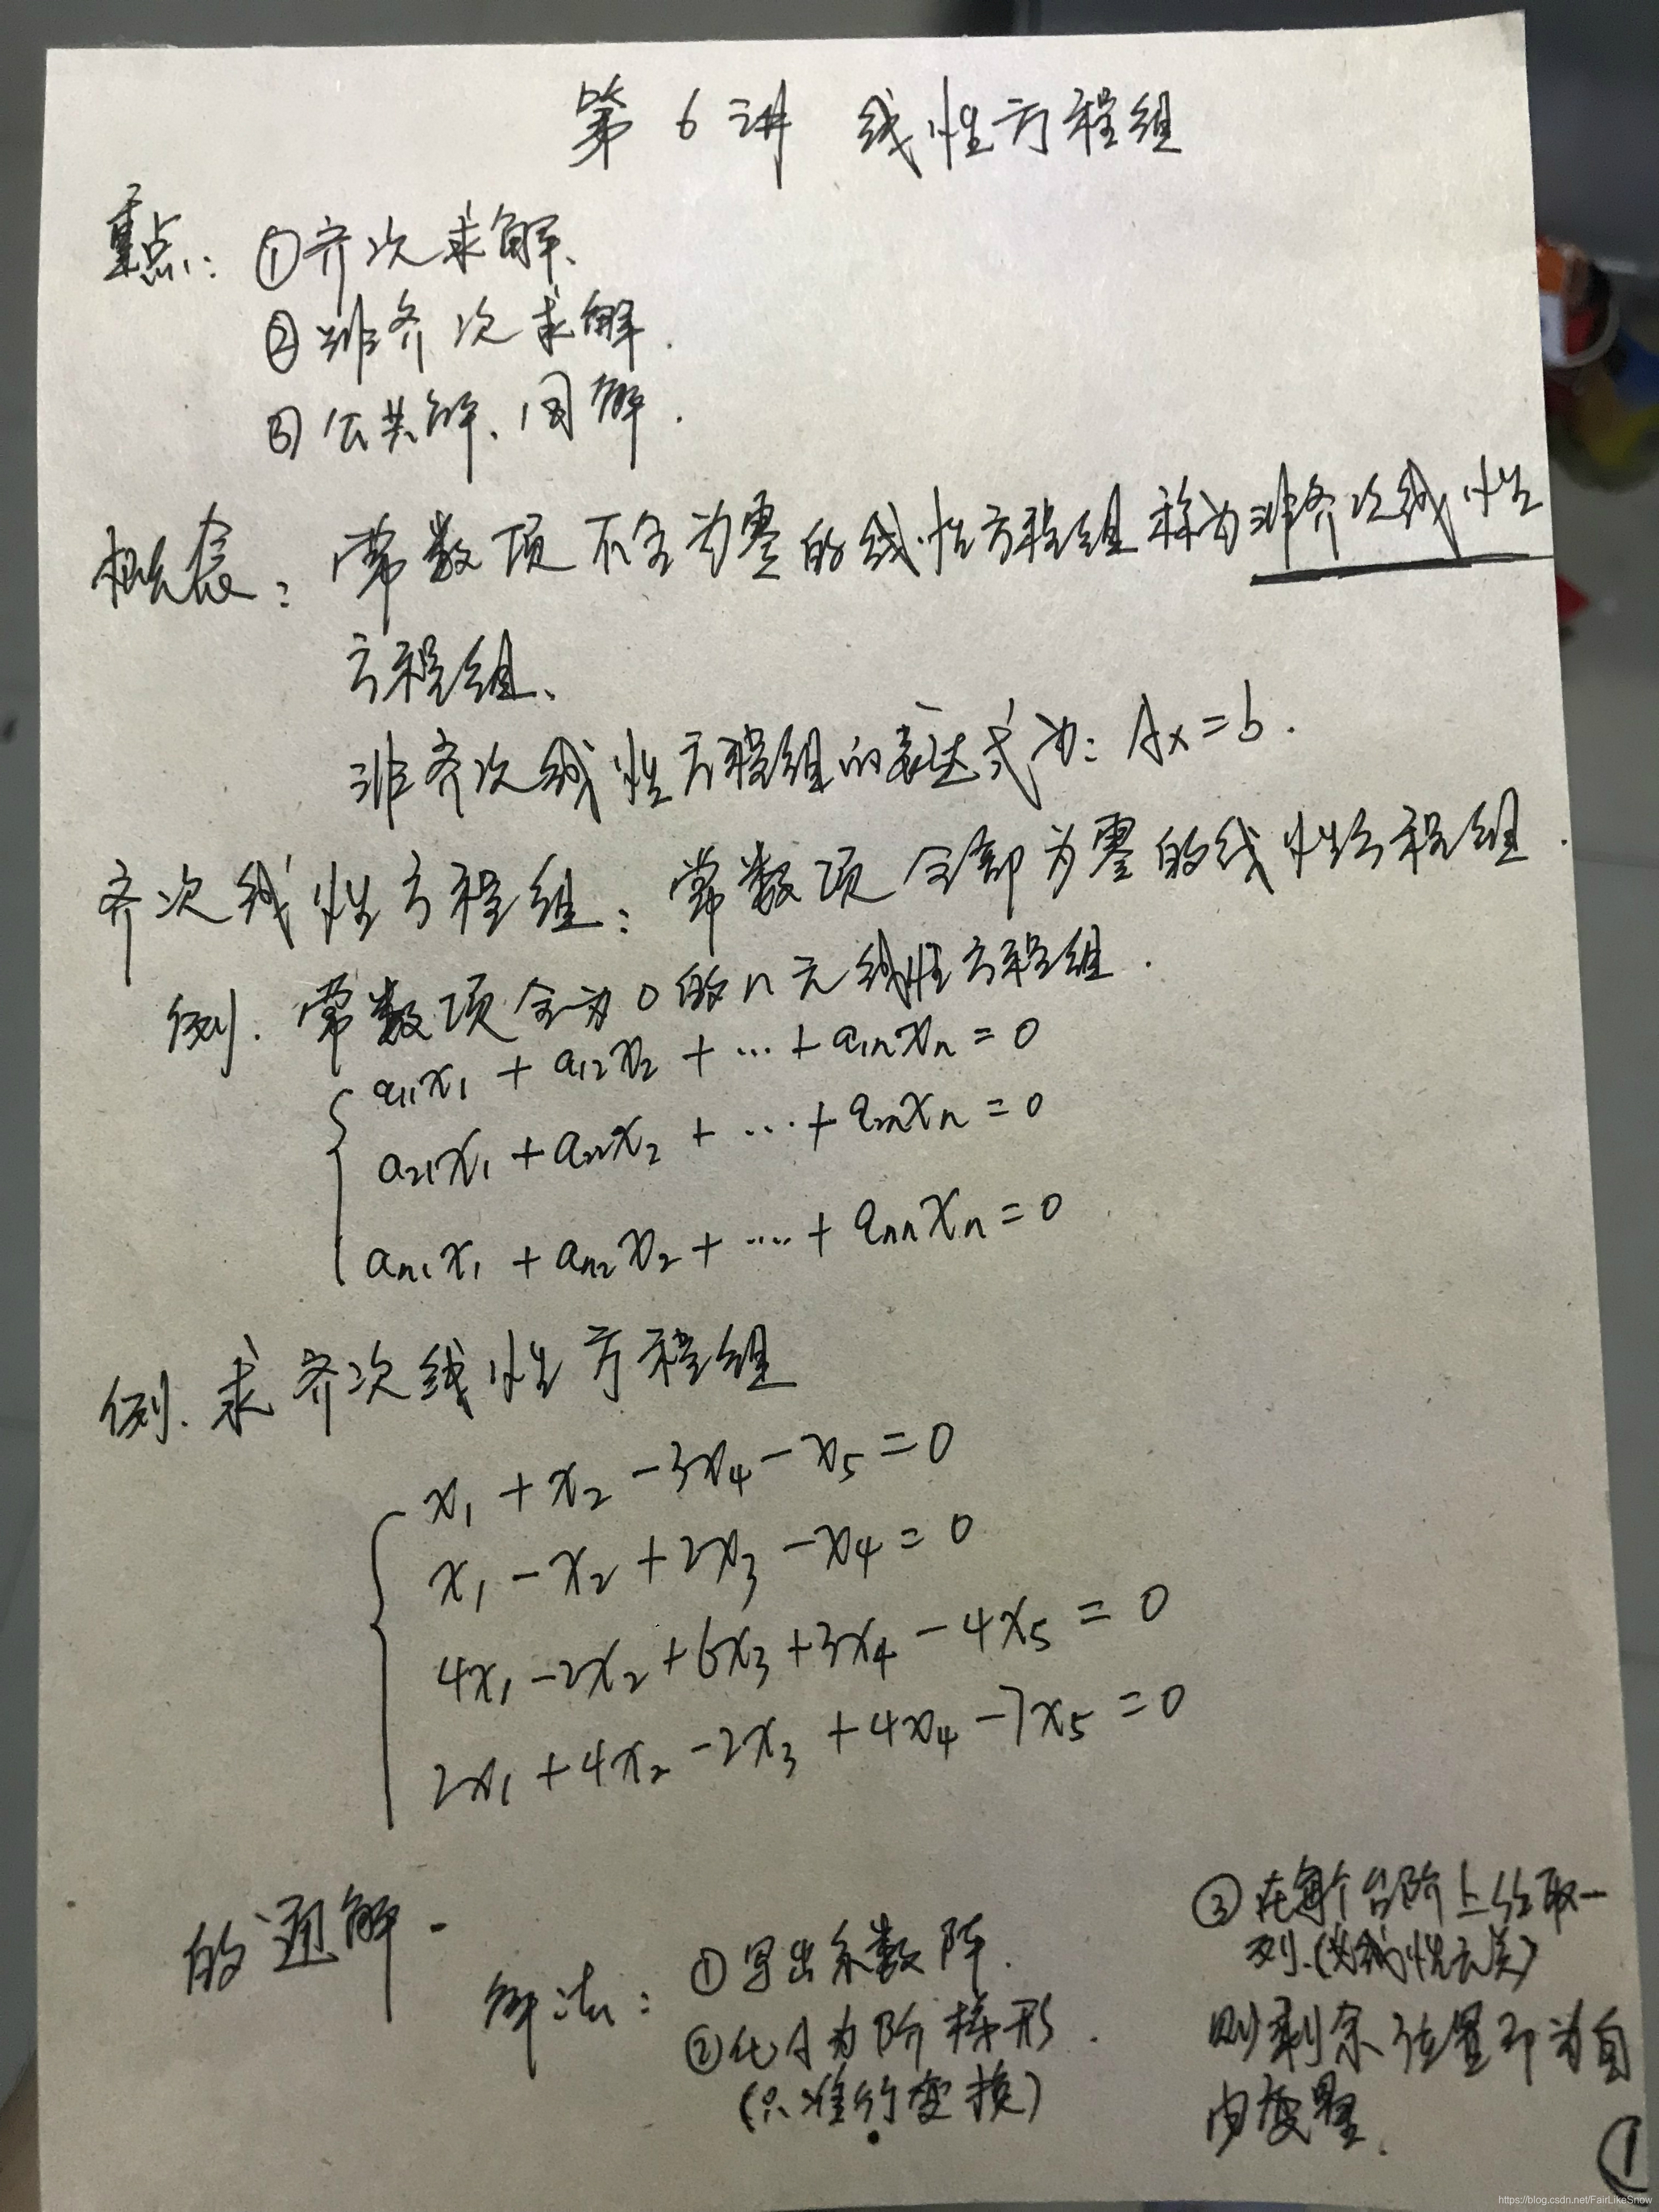 第 6 讲 线性方程组
重点: ①齐次求解、
②非齐次求解.
③公共解、同解.
概念: 常数项不全为零的线性方程组称为非齐次线性
方程组、
非齐次线性方程组的表达式为: Ax=b.
齐次线性方程组: 常数项全部为零的线性方程组.
例. 常数项全为0的n元线性方程组.
a₁₁x₁ + a₁₂x₂ + ... + a₁ₙxₙ = 0
a₂₁x₁ + a₂₂x₂ + ... + a₂ₙxₙ = 0
aₙ₁x₁ + aₙ₂x₂ + .... + aₙₙxₙ = 0
例. 求齐次线性方程组
x₁ + x₂ - 3x₄ - x₅ = 0
x₁ - x₂ + 2x₃ - x₄ = 0
4x₁ - 2x₂ + 6x₃ + 3x₄ - 4x₅ = 0
2x₁ + 4x₂ - 2x₃ + 4x₄ - 7x₅ = 0
的通解.
解法: ①写出系数阵.
②化A为阶梯形.
(只准行变换)
③在每个台阶上任取一
列.(必线性无关)
则剩余位置即为自
由变量.
①
https://blog.csdn.net/FairLikeSnow